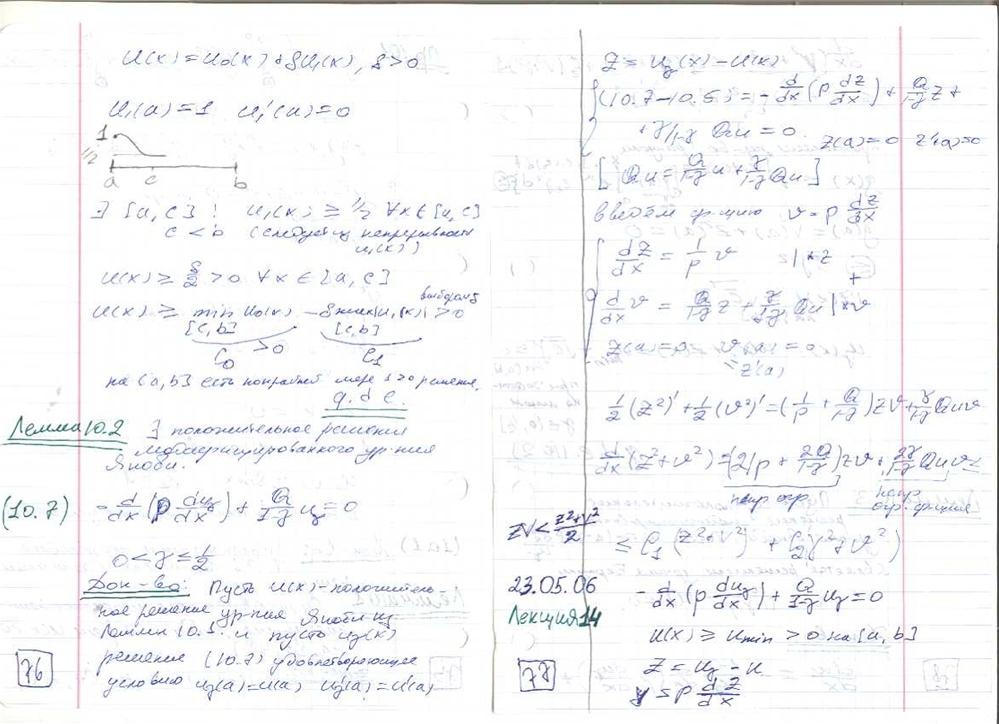 u(x) = u₀(x) + δu₁(x), δ > 0
u₁(a) = 1 u₁'(a) = 0
1
1/2
a c b
∃ [a, c] : u₁(x) ≥ 1/2 ∀x ∈ [a, c]
c < b (следует из непрерывности
u₁(x))
u(x) ≥ δ/2 > 0 ∀x ∈ [a, c]
выбором δ
u(x) ≥ min u₀(x) − δ max|u₁(x)| > 0
[c, b] [c, b]
C₀ > 0 C₁
на [a, b] есть по крайней мере 1 > 0 решение.
q. d. e.
Лемма 10.2 ∃ положительное решение
модифицированного ур-ния
Якоби.
(10.7) − d/dx (p du_γ/dx) + Q/(1-γ) u_γ = 0
0 < γ ≤ 1/2
Док-во: Пусть u(x) - положитель
ное решение ур-ния Якоби из
Леммы 10.1. и пусть u_γ(x)
решение (10.7) удовлетворяющее
условию u_γ(a) = u(a) u_γ'(a) = u'(a)
76
Z = u_γ(x) − u(x)
(10.7 − 10.5) = − d/dx (p dz/dx) + Q/(1-γ) z +
+ γ/(1-γ) Qu = 0. z(a) = 0 z'(a) = 0
[Qu = Q/(1-γ) u + γ/(1-γ) Qu]
введём ф-цию v = p dz/dx
dz/dx = 1/p v | * z
+
d/dx v = Q/(1-γ) z + γ/(1-γ) Qu | * v
z(a) = 0 v(a) = 0
= z'(a)
1/2 (z²)' + 1/2 (v²)' = (1/p + Q/(1-γ)) zv + γ/(1-γ) Quv
d/dx (z² + v²) = (2/p + 2Q/(1-γ)) zv + 2γ/(1-γ) Quv ≤
непр огр. непр
огр. функция
zv < (z² + v²)/2 ≤ C₁ (z² + v²) + C₂ (γ² + v²)
23.05.06 − d/dx (p du_γ/dx) + Q/(1-γ) u_γ = 0
Лекция 14
u(x) ≥ u min > 0 на [a, b]
Z = u_γ − u
v = p dz/dx